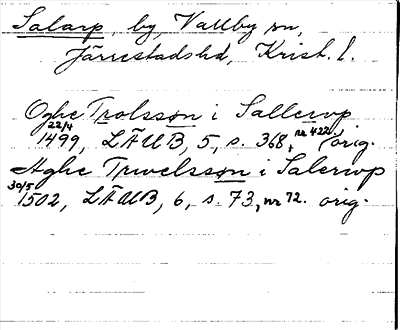 Salarp, by, Vallby sn,
Järrestads hd, Krist. l.
Oghe Trolssøn i Sallerup
22/4 1499, LÄUB, 5, s. 368, nr 422. orig.
Aghe Trwelssøn i Salerwp
30/5 1502, LÄUB, 6, s. 73, nr 72. orig.